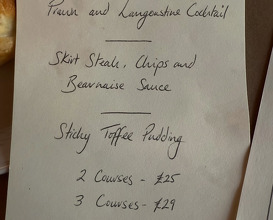 Prawn and Langoustine Cocktail
Skirt Steak, Chips and
Bearnaise Sauce
Sticky Toffee Pudding
2 Courses - £25
3 Courses - £29